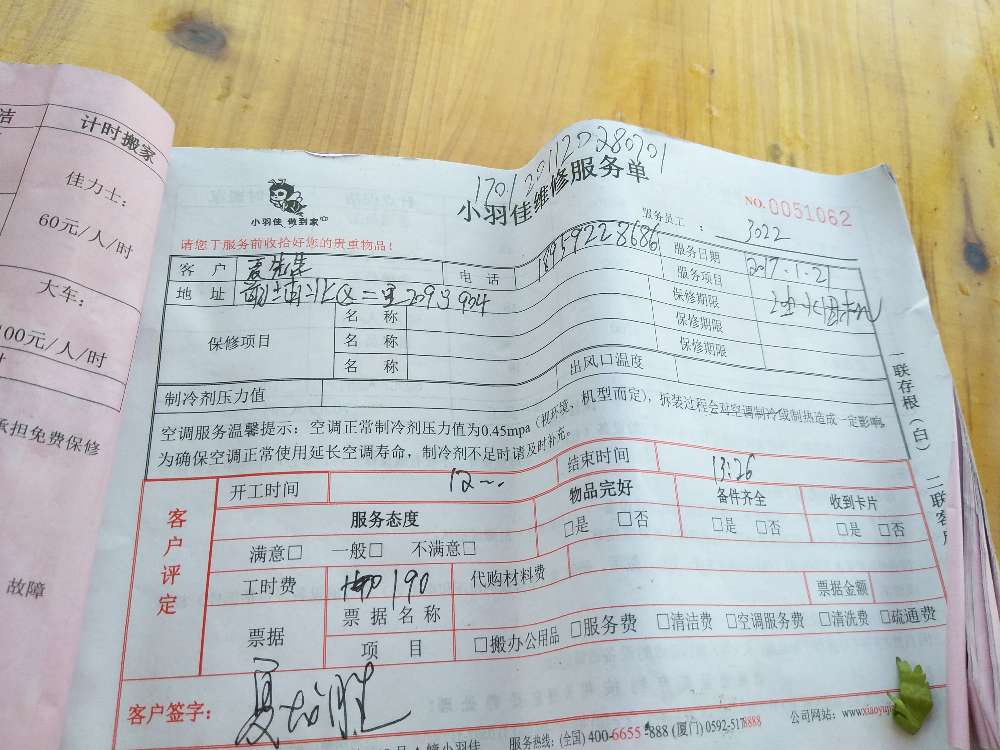 洁
计时搬家
佳力士:
60元/人/时
大车:
100元/人/时
时
承担免费保修
故障
1701201120280701
小羽佳维修服务单
小羽佳 做到家
NO.0051062
服务员工: 3022
请您于服务前收拾好您的贵重物品!
客户 夏先生 电话 18959228686 服务日期 2017.1.21
地址 服务项目
保修项目 名称 保修期限
名称 保修期限
名称 保修期限
制冷剂压力值 出风口温度
空调服务温馨提示:空调正常制冷剂压力值为0.45mpa(视环境、机型而定),拆装过程会对空调制冷或制热造成一定影响,
为确保空调正常使用延长空调寿命,制冷剂不足时请及时补充。
一联存根(白) 二联客户
客户评定
开工时间 结束时间 13:26
服务态度 物品完好 备件齐全 收到卡片
满意□ 一般□ 不满意□ □是 □否 □是 □否 □是 □否
工时费 190 代购材料费 票据金额
票据 票据名称
项目 □搬办公用品 □服务费 □清洁费 □空调服务费 □清洗费 □疏通费
客户签字:
小羽佳 服务热线:(全国)400-6655-888 (厦门) 0592-5178888 公司网站:www.xiaoyuji